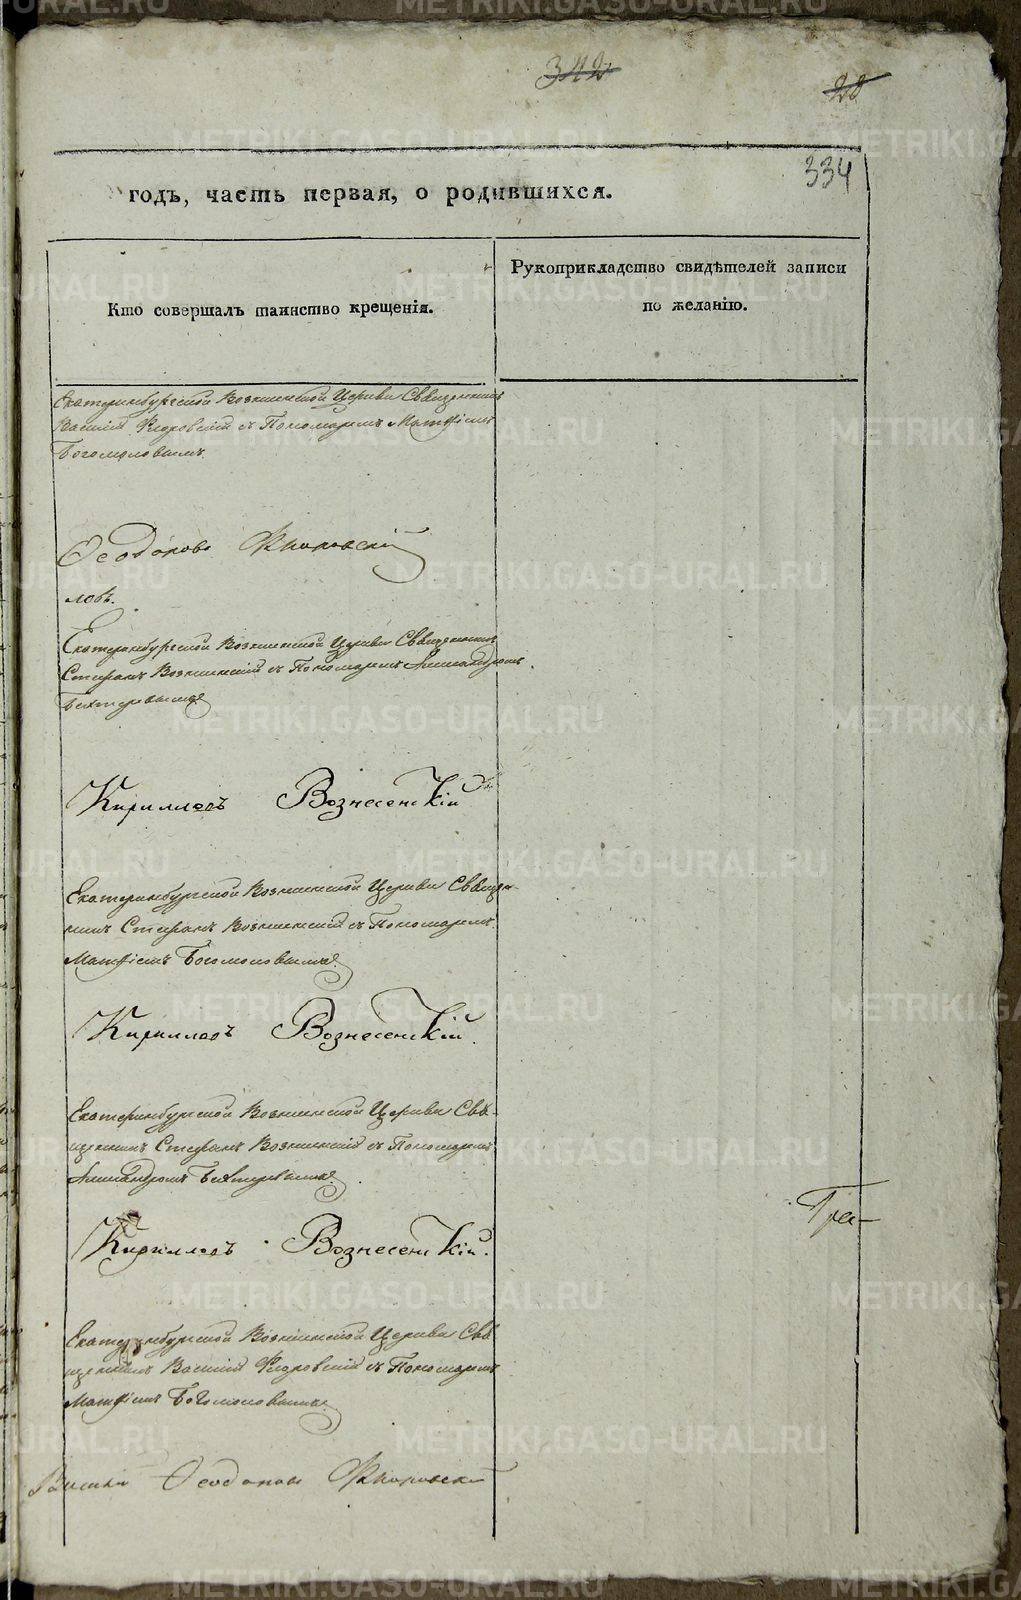 342
28
334
годъ, часть первая, о родившихся.
Кто совершалъ таинство крещенія.
Рукоприкладство свидѣтелей записи
по желанію.
Екатеринбургской Вознесенской Церкви Священникъ
Василій Флоровскій съ Пономаремъ Матѳіемъ
Богомоловымъ.
Ѳеодоровъ Флоровскій
ловъ.
Екатеринбургской Вознесенской Церкви Священникъ
Стефанъ Вознесенскій съ Пономаремъ Александромъ
Бехтеревымъ
Кирилловъ Вознесенскій
Екатеринбургской Вознесенской Церкви Священ-
никъ Стефанъ Вознесенскій съ Пономаремъ
Матѳіемъ Богомоловымъ
Кирилловъ Вознесенскій.
Екатеринбургской Вознесенской Церкви Свя-
щенникъ Стефанъ Вознесенскій съ Пономаремъ
Александромъ Бехтеревымъ
Кирилловъ Вознесенскій.
Гре-
Екатеринбургской Вознесенской Церкви Свя-
щенникъ Василій Флоровскій съ Пономаремъ
Матѳіемъ Богомоловымъ.
Василій Ѳеодоровъ Флоровскій
METRIKI.GASO-URAL.RU